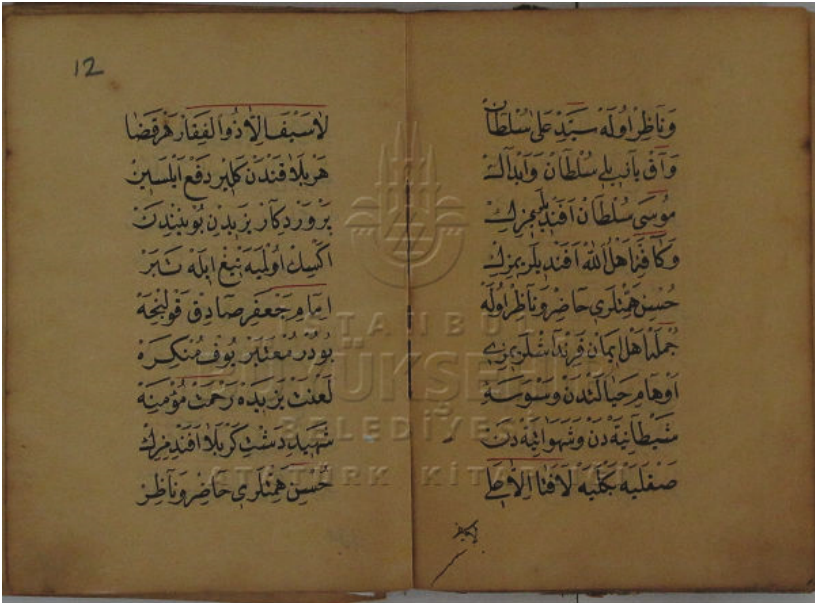 وَنَاظِرْ اُولَه سَيِّدْ عَلِى سُلْطَانْ
سُلْطَانْ وَاَبْدَالْ
مُوسَى سُلْطَانْ اَفَنْدِيلَرِيمِزِكْ
وَكَافَّهِٔ اَهْلُ اللّٰه اَفَنْدِيلَرِيمِزِكْ
حُسْنِ هِمَّتْلَرِى حَاضِرْ وَنَاظِرْ اُولَه
جُمْلَه اَهْلِ اِيمَانْ قَرِنْدَاشْلَرِيمِزِى
اَوْهَامِ خَيَالَتْدَنْ وَسْوَسَهِٔ
شَيْطَانِيَه دَنْ وَشَهَوَانِيَه دَنْ
صَقْلَيَه بَكْلَيَه لَا فَتَا اِلَّا عَلِى
12
لَا سَيْفَا اِلَّا ذُو الْفِقَارْ هَرْ قَضَا
هَرْ بَلَا قَنْدَنْ كَلِيرْ دَفْعْ اَيْلَسِينْ
پَرْوَرْدِكَارْ يَزِيدِنْ بُوينِنْدَنْ
اَكْسِكْ اُولْمَيَه تِيغْ اِيلَه تَبَرْ
اِمَامِ جَعْفَرِ صَادِقْ قَوْلِنْجَه
بُودُرْ مُعْتَبَرْ يُوفْ مُنْكِرَه
لَعْنَتْ يَزِيدَه رَحْمَتْ مُؤْمِنَه
شَهِيدِ دَشْتِ كَرْبَلَا اَفَنْدِمِزِكْ
حُسْنِ هِمَّتْلَرِى حَاضِرْ وَنَاظِرْ
İSTANBUL
BÜYÜKŞEHİR
BELEDİYESİ
ATATÜRK KİTAPLIĞI